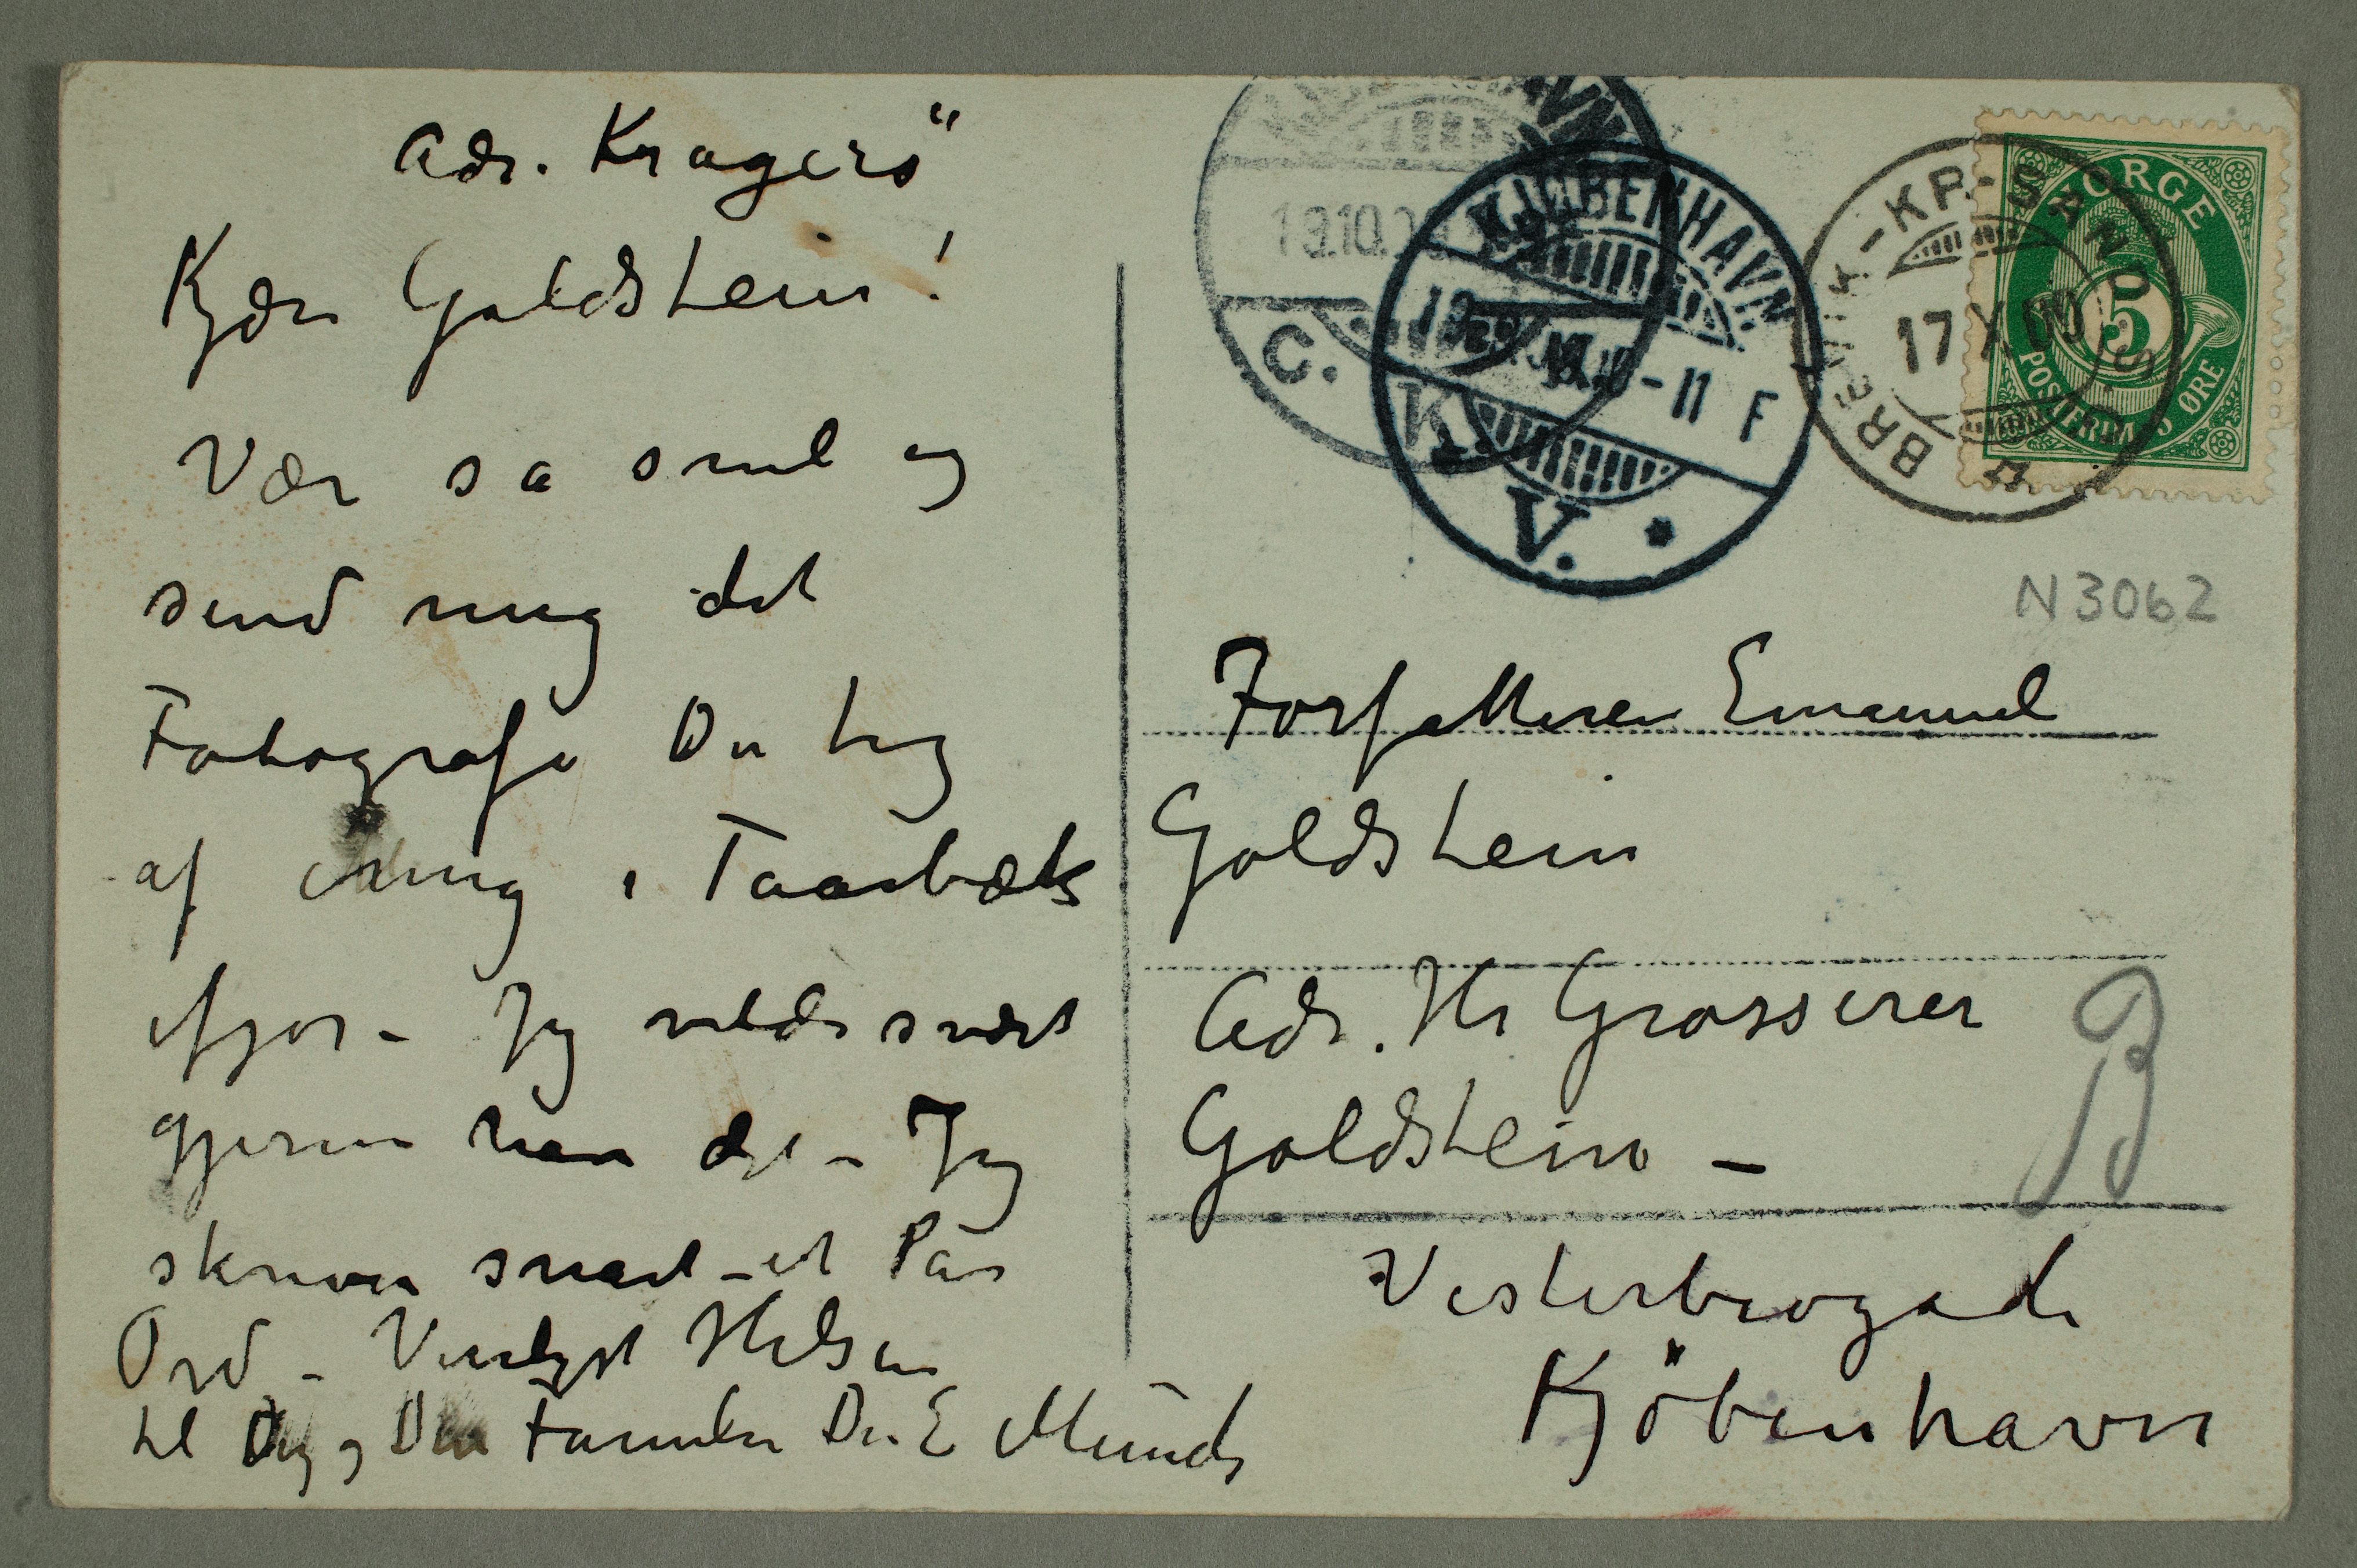 Adr. Kragerö
Kjære Goldstein!
Vær så snil og
send mig det
Fotografi Du tog
af mig i Taarbæk
ifjor – Jeg vilde svært
gjerne have det – Jeg
skriver snart et Par
Ord – Venligst Hilsen
til Dig og Din Familie Din E Munch
KJØBENHAVN
19.10.
C.
K.
KJØBENHAVN
-11 F
V. *
BREVIK-KR-SAND
17 X
NORGE
5
POSTFRIM 5 ØRE
N3062
Forfatteren Emanuel
Goldstein
Adr. Hr Grosserer
Goldstein –
B
Vesterbrogade
Kjöbenhavn